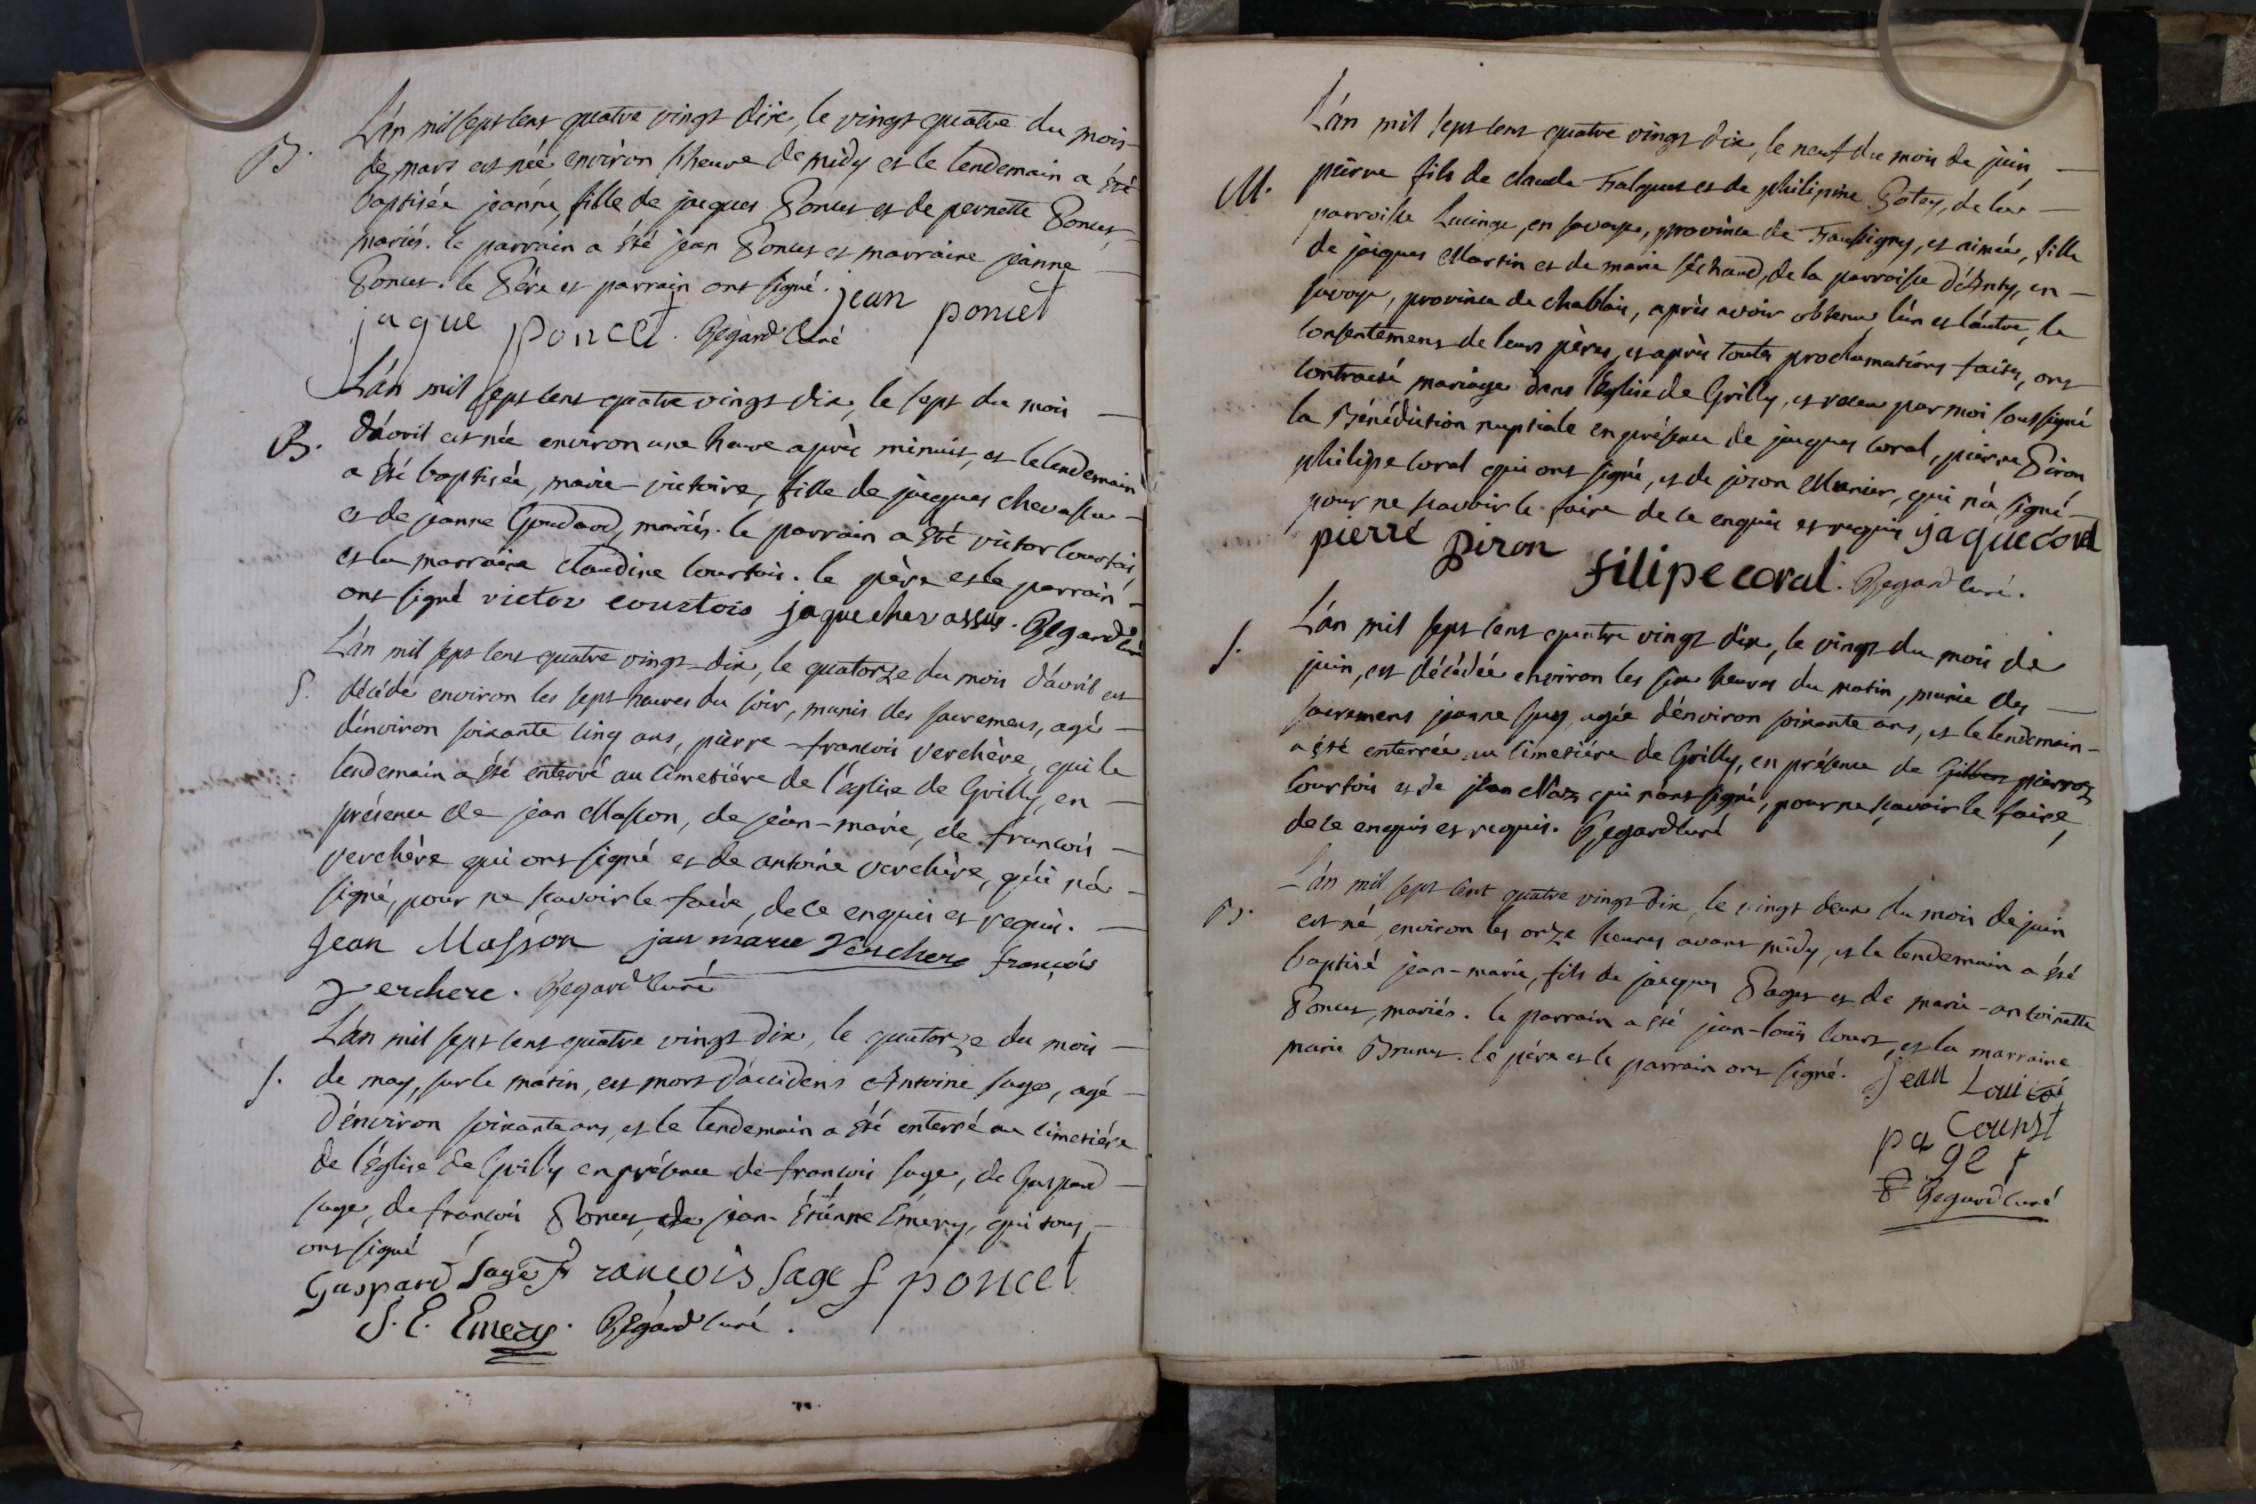 L'an mil sept cent quatre vingt dix, le vingt quatre du mois
B.
de mars est née environ l'heure de midy et le lendemain a été
baptisée jeanne, fille de jacques Poncet et de pernette Poncet,
mariés. le parrain a été jean Poncet et marraine jeanne
Poncet. le Père et parrain ont signé. jean poncet
jaque poncet. Regard Curé
L'an mil sept cent quatre vingt dix, le sept du mois
B.
d'avril est née environ une heure après minuit, et le lendemain
a été baptisée, marie-victoire, fille de jacques chevassu
et de jeanne Goudard, mariés. le parrain a été victor Courtois
et la marraine claudine Courtois. le père et le parrain
ont signé victor courtois jaque chevassus. Regard Curé
L'an mil sept cent quatre vingt-dix, le quatorze du mois d'avril est
S.
décédé environ les sept heures du soir, munis des sacremens, agé
d'environ soixante cinq ans, pierre-francois verchère, qui le
lendemain a été enterré au cimetiére de l'église de Grilly, en
présence de jean Masson, de jean-marie, de francois
verchère qui ont signé et de antoine verchère, qui n'a
signé, pour ne sçavoir le faire, de ce enquis et requis.
Jean Masson jan marie Verchere françois
verchere. Regard Curé
L'an mil sept cent quatre vingt dix, le quatorze du mois
S.
de may, sur le matin, est mort d'accident Antoine sage, agé
d'environ soixante ans, et le lendemain a été enterré au cimetiére
de l'église de Grilly en présence de francois sage, de Gaspard
sage, de francois Poncet, de jean-Étienne Émery, qui tous
ont signé
Gaspard sage françois sage f poncet
J. E. Emery. Regard Curé.
L'an mil sept cent quatre vingt dix, le neuf du mois de juin,
M.
pierre fils de claude et de philipine de la
parroisse Lucinge, en savoye, province de Faussigny, et aimée, fille
de jacques Martin et de marie séchaud, de la parroisse d'Anty, en
savoye, province de chablais, après avoir obtenu l'un et l'autre, le
consentement de leurs pères, et après toutes proclamations faites, ont
contracté mariage dans l'église de Grilly, et reçu par moi soussigné
la Bénédiction nuptiale en présence de jacques coral, pierre Piron,
philippe coral qui ont signé, et de Munier, qui n'a signé
pour ne sçavoir le faire de ce enquis et requis jaque coral
pierre piron
filipe coral. Regard curé.
L'an mil sept cent quatre vingt dix, le vingt du mois de
S.
juin, est décédée environ les six heures du matin, munie des
sacremens jeanne agée d'environ soixante ans, et le lendemain
a été enterrée au cimetiére de Grilly, en présence de pierre
Courtois et de jean qui n'ont signé, pour ne sçavoir le faire,
de ce enquis et requis. Regard curé
L'an mil sept cent quatre vingt dix, le vingt deux du mois de juin
B.
est né, environ les onze heures avant midy, et le lendemain a été
baptisé jean-marie, fils de jacques Paget et de marie-antoinette
Poncet, mariés. le parrain a été jean-louis Court, et la marraine
marie Brunet. le père et le parrain ont signé. jean Loui
Counst
pa
ge t
Regard curé